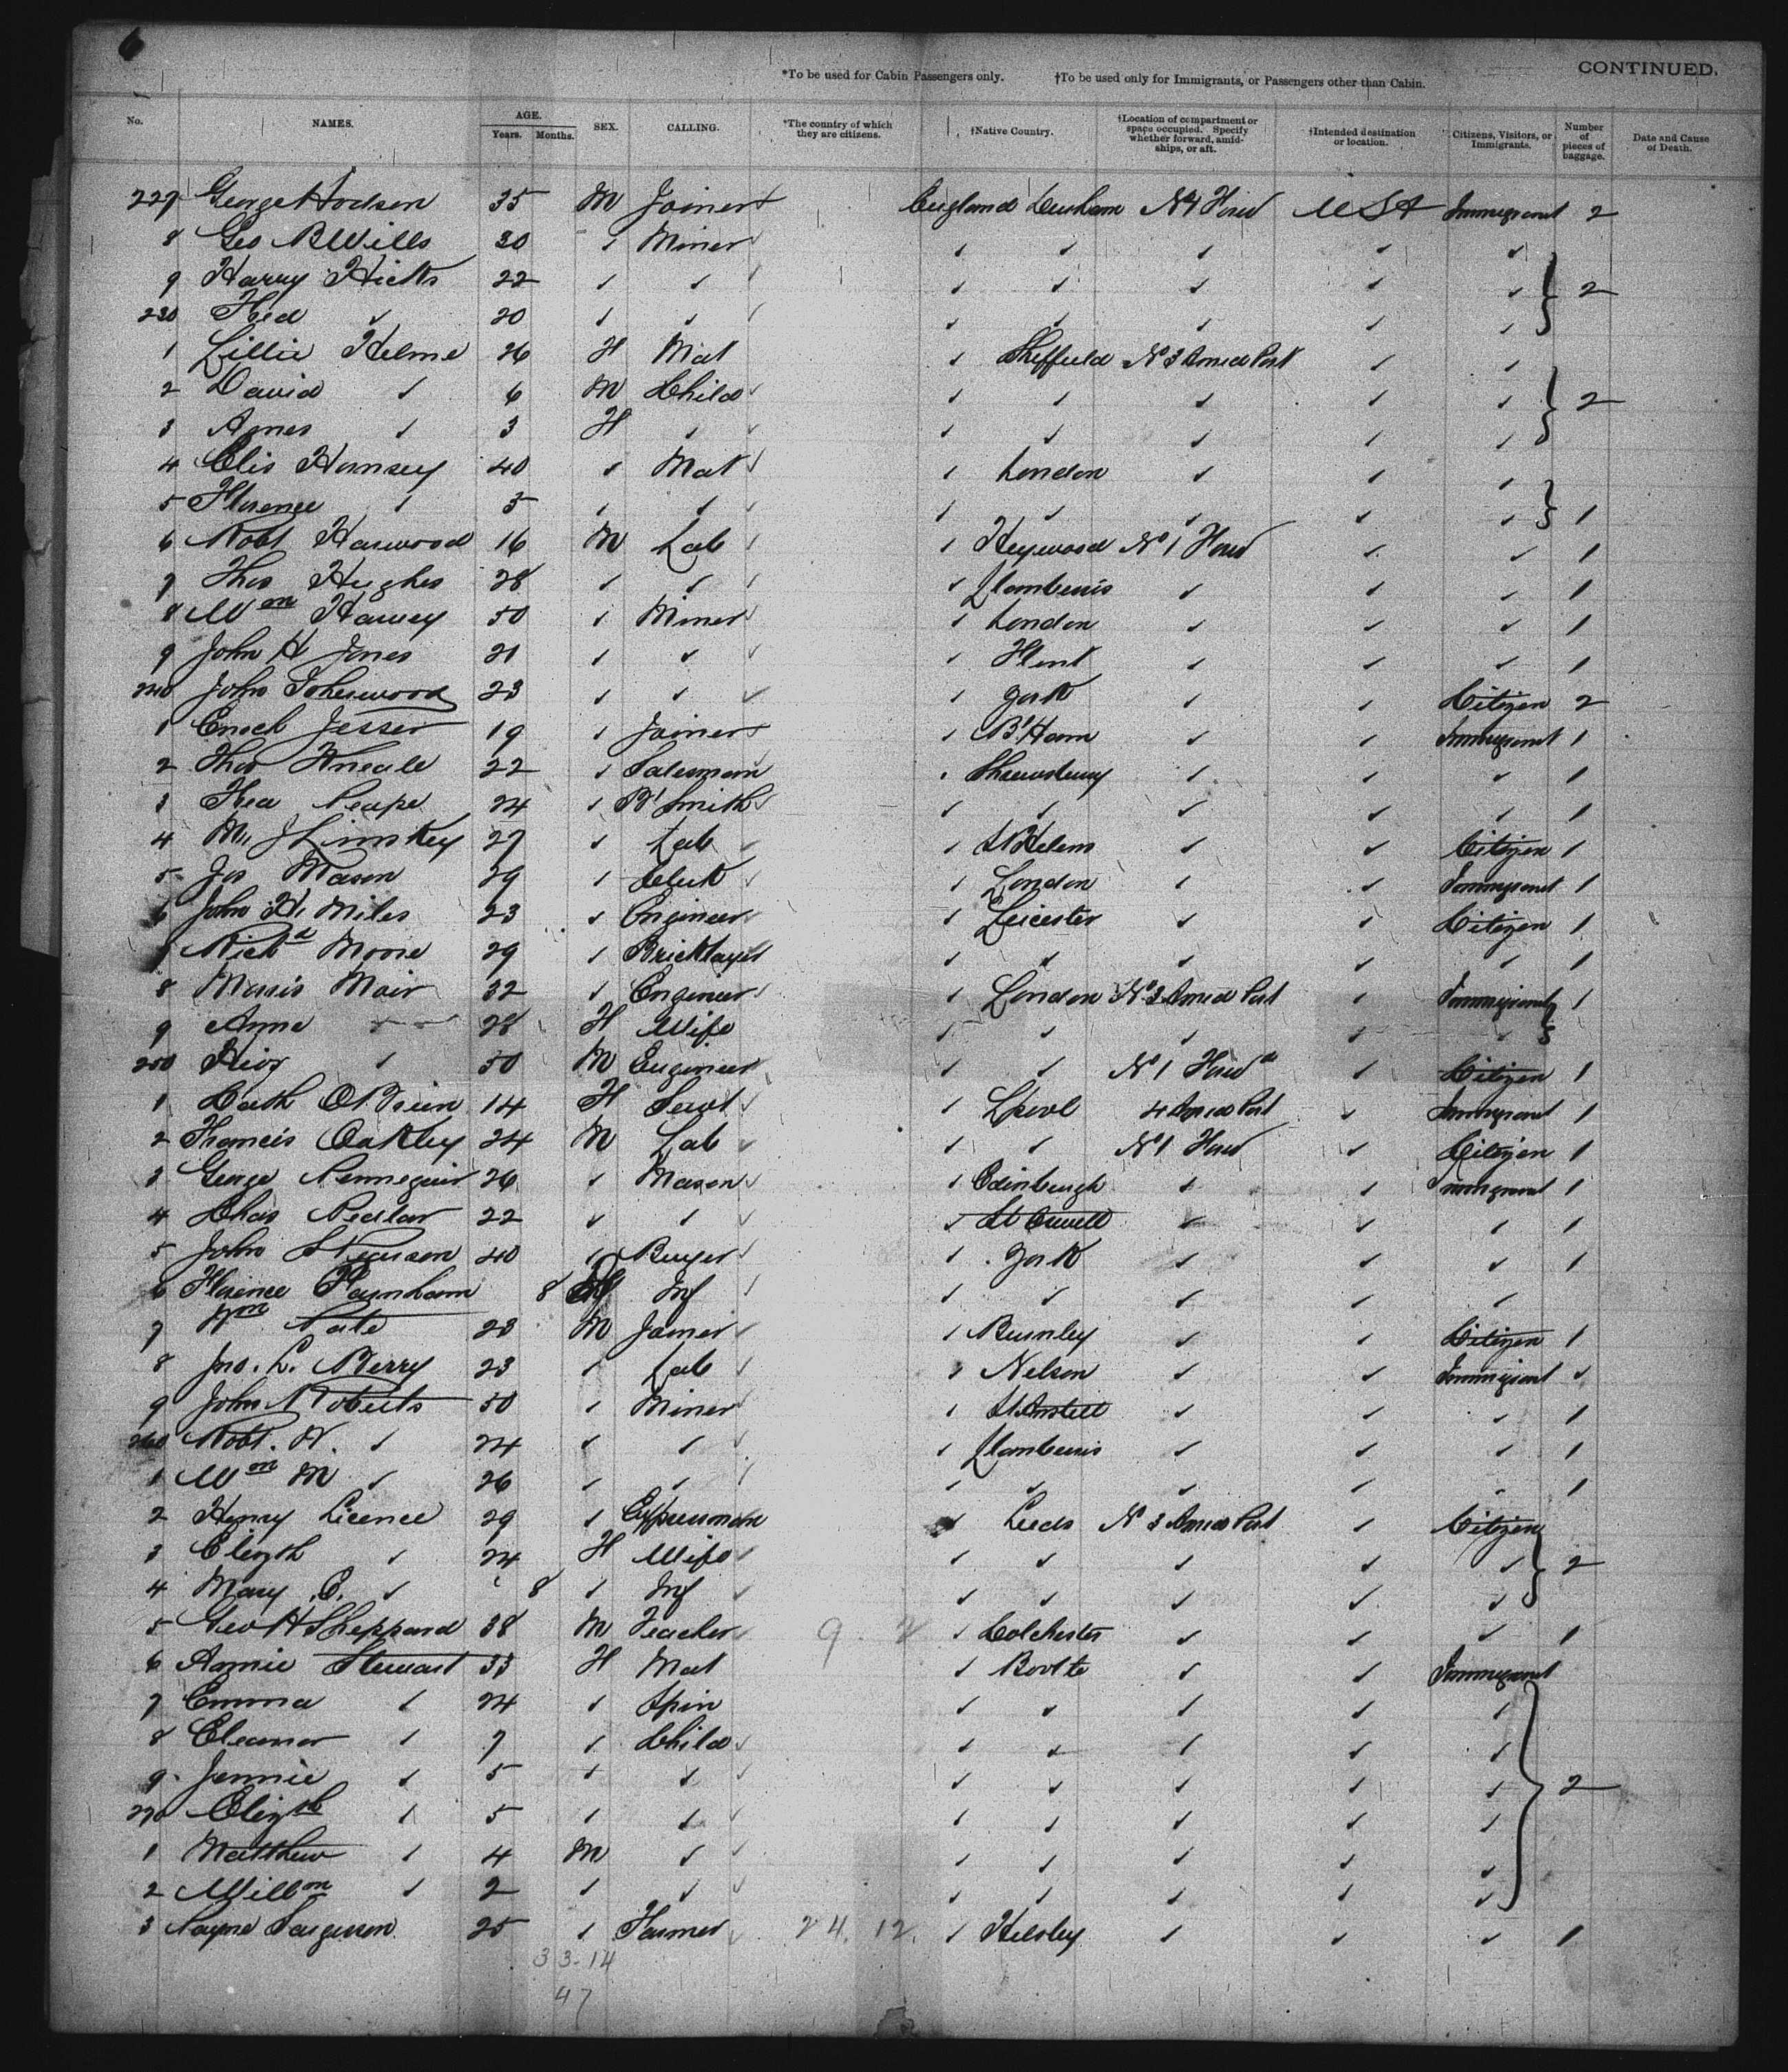 6
*To be used for Cabin Passengers only. †To be used only for Immigrants, or Passengers other than Cabin. CONTINUED.
No. NAMES. AGE. Years. Months. SEX. CALLING. *The country of which they are citizens. †Native Country. †Location of compartment or space occupied. Specify whether forward, amidships, or aft. †Intended destination or location. Citizens, Visitors, or Immigrants. Number of pieces of baggage. Date and Cause of Death.
227 George Hodson 35 M Joiner England Durham No 1 Forwd USA Immigrant 2
8 Geo B Wills 30 ✓ Miner ✓ ✓ ✓ ✓ ✓
9 Harry Hicks 22 ✓ ✓ ✓ ✓ ✓ ✓ ✓ 2
230 Fred ✓ 20 ✓ ✓ ✓ ✓ ✓ ✓ ✓
1 Lillie Helme 26 F Mat ✓ Sheffield No 3 Amid Port ✓ ✓
2 David ✓ 6 M Child ✓ ✓ ✓ ✓ ✓ 2
3 Agnes ✓ 3 F ✓ ✓ ✓ ✓ ✓ ✓
4 Elis Hornsey 40 ✓ Mat ✓ London ✓ ✓ ✓
5 Florence ✓ 5 ✓ ✓ ✓ ✓ ✓ ✓ ✓ 1
6 Robt Harwood 16 M Lab ✓ Heywood No 1 Forwd ✓ ✓ 1
7 Thos Hughes 28 ✓ ✓ ✓ Llanberris ✓ ✓ ✓ 1
8 Wm Harvey 50 ✓ Miner ✓ London ✓ ✓ ✓ 1
9 John H Jones 21 ✓ ✓ ✓ Flint ✓ ✓ ✓ 1
240 John 23 ✓ ✓ ✓ York ✓ ✓ Citizen 2
1 Enoch Jesser 19 ✓ Joiner ✓ B'Ham ✓ ✓ Immigrant 1
2 Thos Kneale 22 ✓ Salesman ✓ Shrewsbury ✓ ✓ ✓ 1
3 24 ✓ Bl Smith ✓ ✓ ✓ ✓ ✓ 1
4 M. J Linskey 27 ✓ Lab ✓ St Helens ✓ ✓ Citizen 1
5 Jos Mason 29 ✓ Clerk ✓ London ✓ ✓ Immigrant 1
6 John H. Miles 23 ✓ Engineer ✓ Leicester ✓ ✓ Citizen 1
7 Richd Moore 29 ✓ Bricklayer ✓ ✓ ✓ ✓ ✓ 1
8 Morris Moir 32 ✓ Engineer ✓ London No 3 Amid Port ✓ Immigrant 1
9 Anne ✓ 28 F Wife ✓ ✓ ✓ ✓ ✓
250 ✓ 50 M Engineer ✓ ✓ No 1 Forwd ✓ Citizen 1
1 Cath O'Brien 14 F Servt ✓ Lpool 4 Amid Port ✓ Immigrant 1
2 Francis Oakley 24 M Lab ✓ ✓ No 1 Forwd ✓ Citizen 1
3 George 26 ✓ Mason ✓ Edinburgh ✓ ✓ Immigrant 1
4 Chas Pedlar 22 ✓ ✓ ✓ ✓ ✓ ✓ 1
5 John 40 ✓ Buyer ✓ York ✓ ✓ ✓ 1
6 Florence Farnham 8 Inf ✓ ✓ ✓ ✓ ✓
7 Wm Pate 23 M Joiner ✓ Burnley ✓ ✓ Citizen 1
8 Jno. L. Berry 23 ✓ Lab ✓ Nelson ✓ ✓ Immigrant ✓
9 John Roberts 50 ✓ Miner ✓ St Austell ✓ ✓ ✓ 1
260 Robt. W. ✓ 24 ✓ ✓ ✓ Llanberris ✓ ✓ ✓ 1
1 Wm M ✓ 26 ✓ ✓ ✓ ✓ ✓ ✓ ✓ 1
2 Henry Licence 29 ✓ Expressman ✓ Leeds No 3 Amid Port ✓ Citizen
3 Elizth ✓ 24 F Wife ✓ ✓ ✓ ✓ ✓ 2
4 Mary E. ✓ 8 ✓ Inf ✓ ✓ ✓ ✓ ✓
5 Geo H Sheppard 38 M Teacher 9 ✓ Colchester ✓ ✓ ✓ 1
6 Annie Stewart 33 F Mat ✓ Bootle ✓ ✓ Immigrant
7 Emma ✓ 24 ✓ Spin ✓ ✓ ✓ ✓ ✓
8 Eleanor ✓ 7 ✓ Child ✓ ✓ ✓ ✓ ✓
9 Jennie ✓ 5 ✓ ✓ ✓ ✓ ✓ ✓ ✓ 2
270 Elizth ✓ 5 ✓ ✓ ✓ ✓ ✓ ✓ ✓
1 Matthew ✓ 4 M ✓ ✓ ✓ ✓ ✓ ✓
2 Willm ✓ 2 ✓ ✓ ✓ ✓ ✓ ✓ ✓
3 25 ✓ Farmer 24. 12. ✓ ✓ ✓ ✓ 1
33-14
47